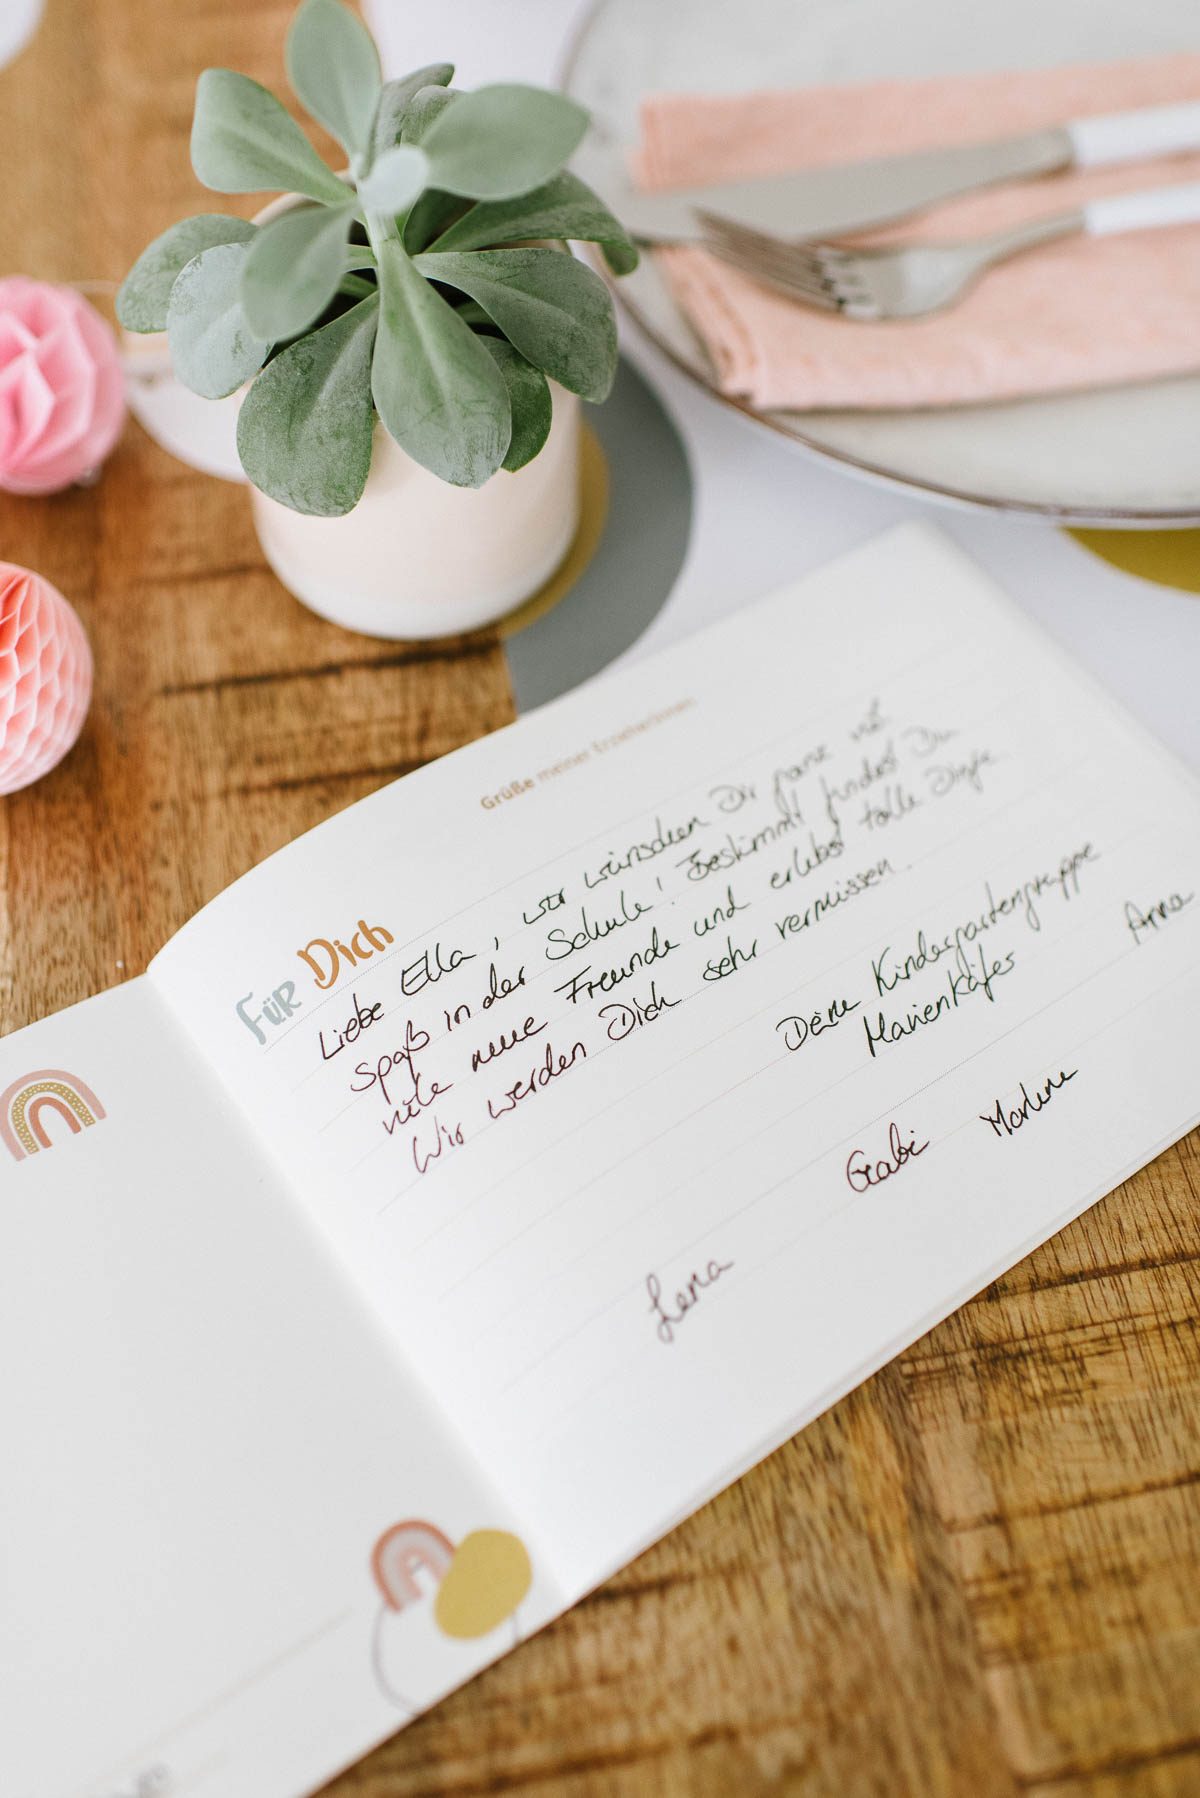 Grüße meiner Erzieher/innen
FÜR Dich
Liebe Ella, wir wünschen Dir ganz viel
Spaß in der Schule! Bestimmt findest Du
viele neue Freunde und erlebst tolle Dinge
Wir werden Dich sehr vermissen.
Deine Kindergartengruppe
Marienkäfer
Anna
Gabi Marlene
Lena